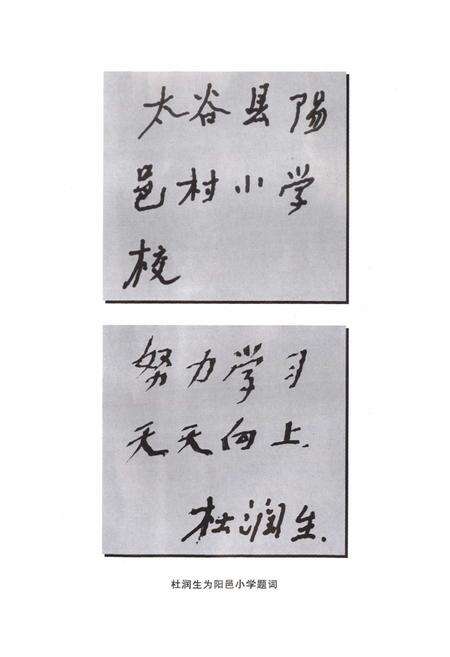 太谷县陽
邑村小学
校
努力学习
天天向上.
杜润生.
杜润生为阳邑小学题词